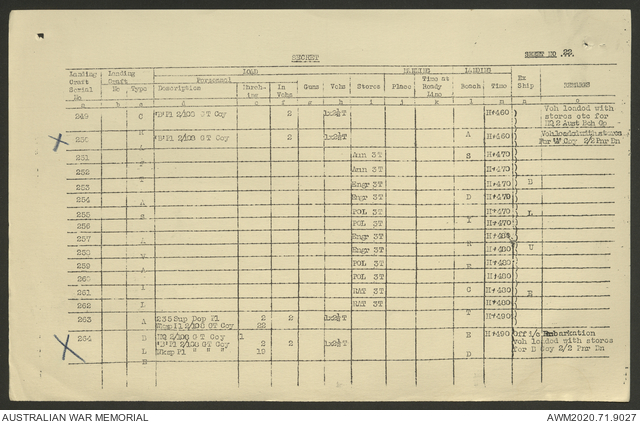 SECRET
SHEET NO 22.
Landing Craft Serial No
Landing Craft
No Type
LOAD
Personnel
Description
In Vehs
Guns Vehs Stores
Place
Time at Ready Line
LANDING
Beach Time
Ex Ship
REMARKS
249 C 'B' Pl 2/108 GT Coy 2 1x2½T H+460 Veh loaded with
stores etc for
HQ 2 Aust Bch Gp
250 'B' Pl 2/108 GT Coy 2 1x2½T A H+460 Veh loaded with stores
For 'A' Coy 2/2 Pnr Bn
251 Amn 3T S H+470
252 Amn 3T H+470
253 Engr 3T H+470 B
254 A Engr 3T D H+470
255 S POL 3T H+470 L
256 POL 3T H+470
257 Engr 3T
258 Engr 3T H+480 U
259 POL 3T H+480
260 POL 3T H+480
261 RAT 3T H+480 E
262 L RAT 3T H+480
263 A 235 Sup Dep Pl 2 2 1x2½T T H+490
Wksp Pl 2/108 GT Coy 22
264 HQ 2/108 GT Coy 1 E H+490 Off i/c Embarkation
'B' Pl 2/108 GT Coy 2 2 1x2½T veh loaded with stores
L Wksp Pl " " " 19 D for D Coy 2/2 Pnr Bn
AUSTRALIAN WAR MEMORIAL
AWM2020.71.9027